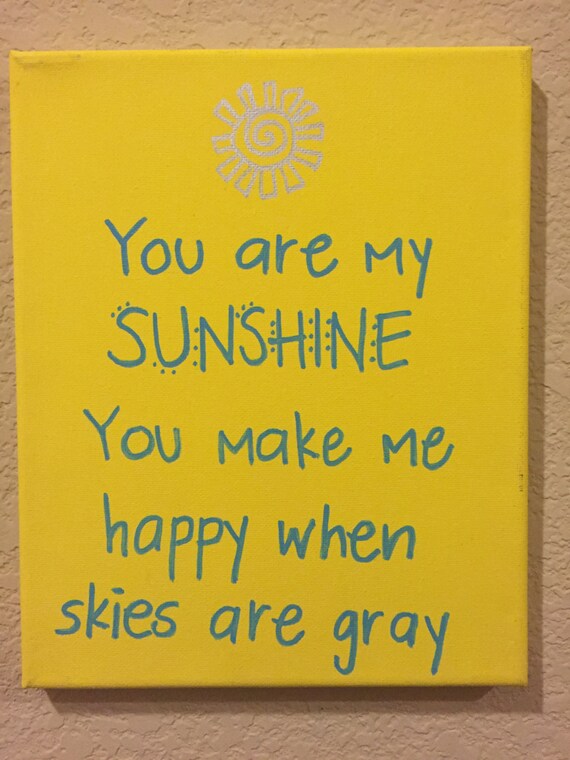 You are my
SUNSHINE
You make me
happy when
skies are gray